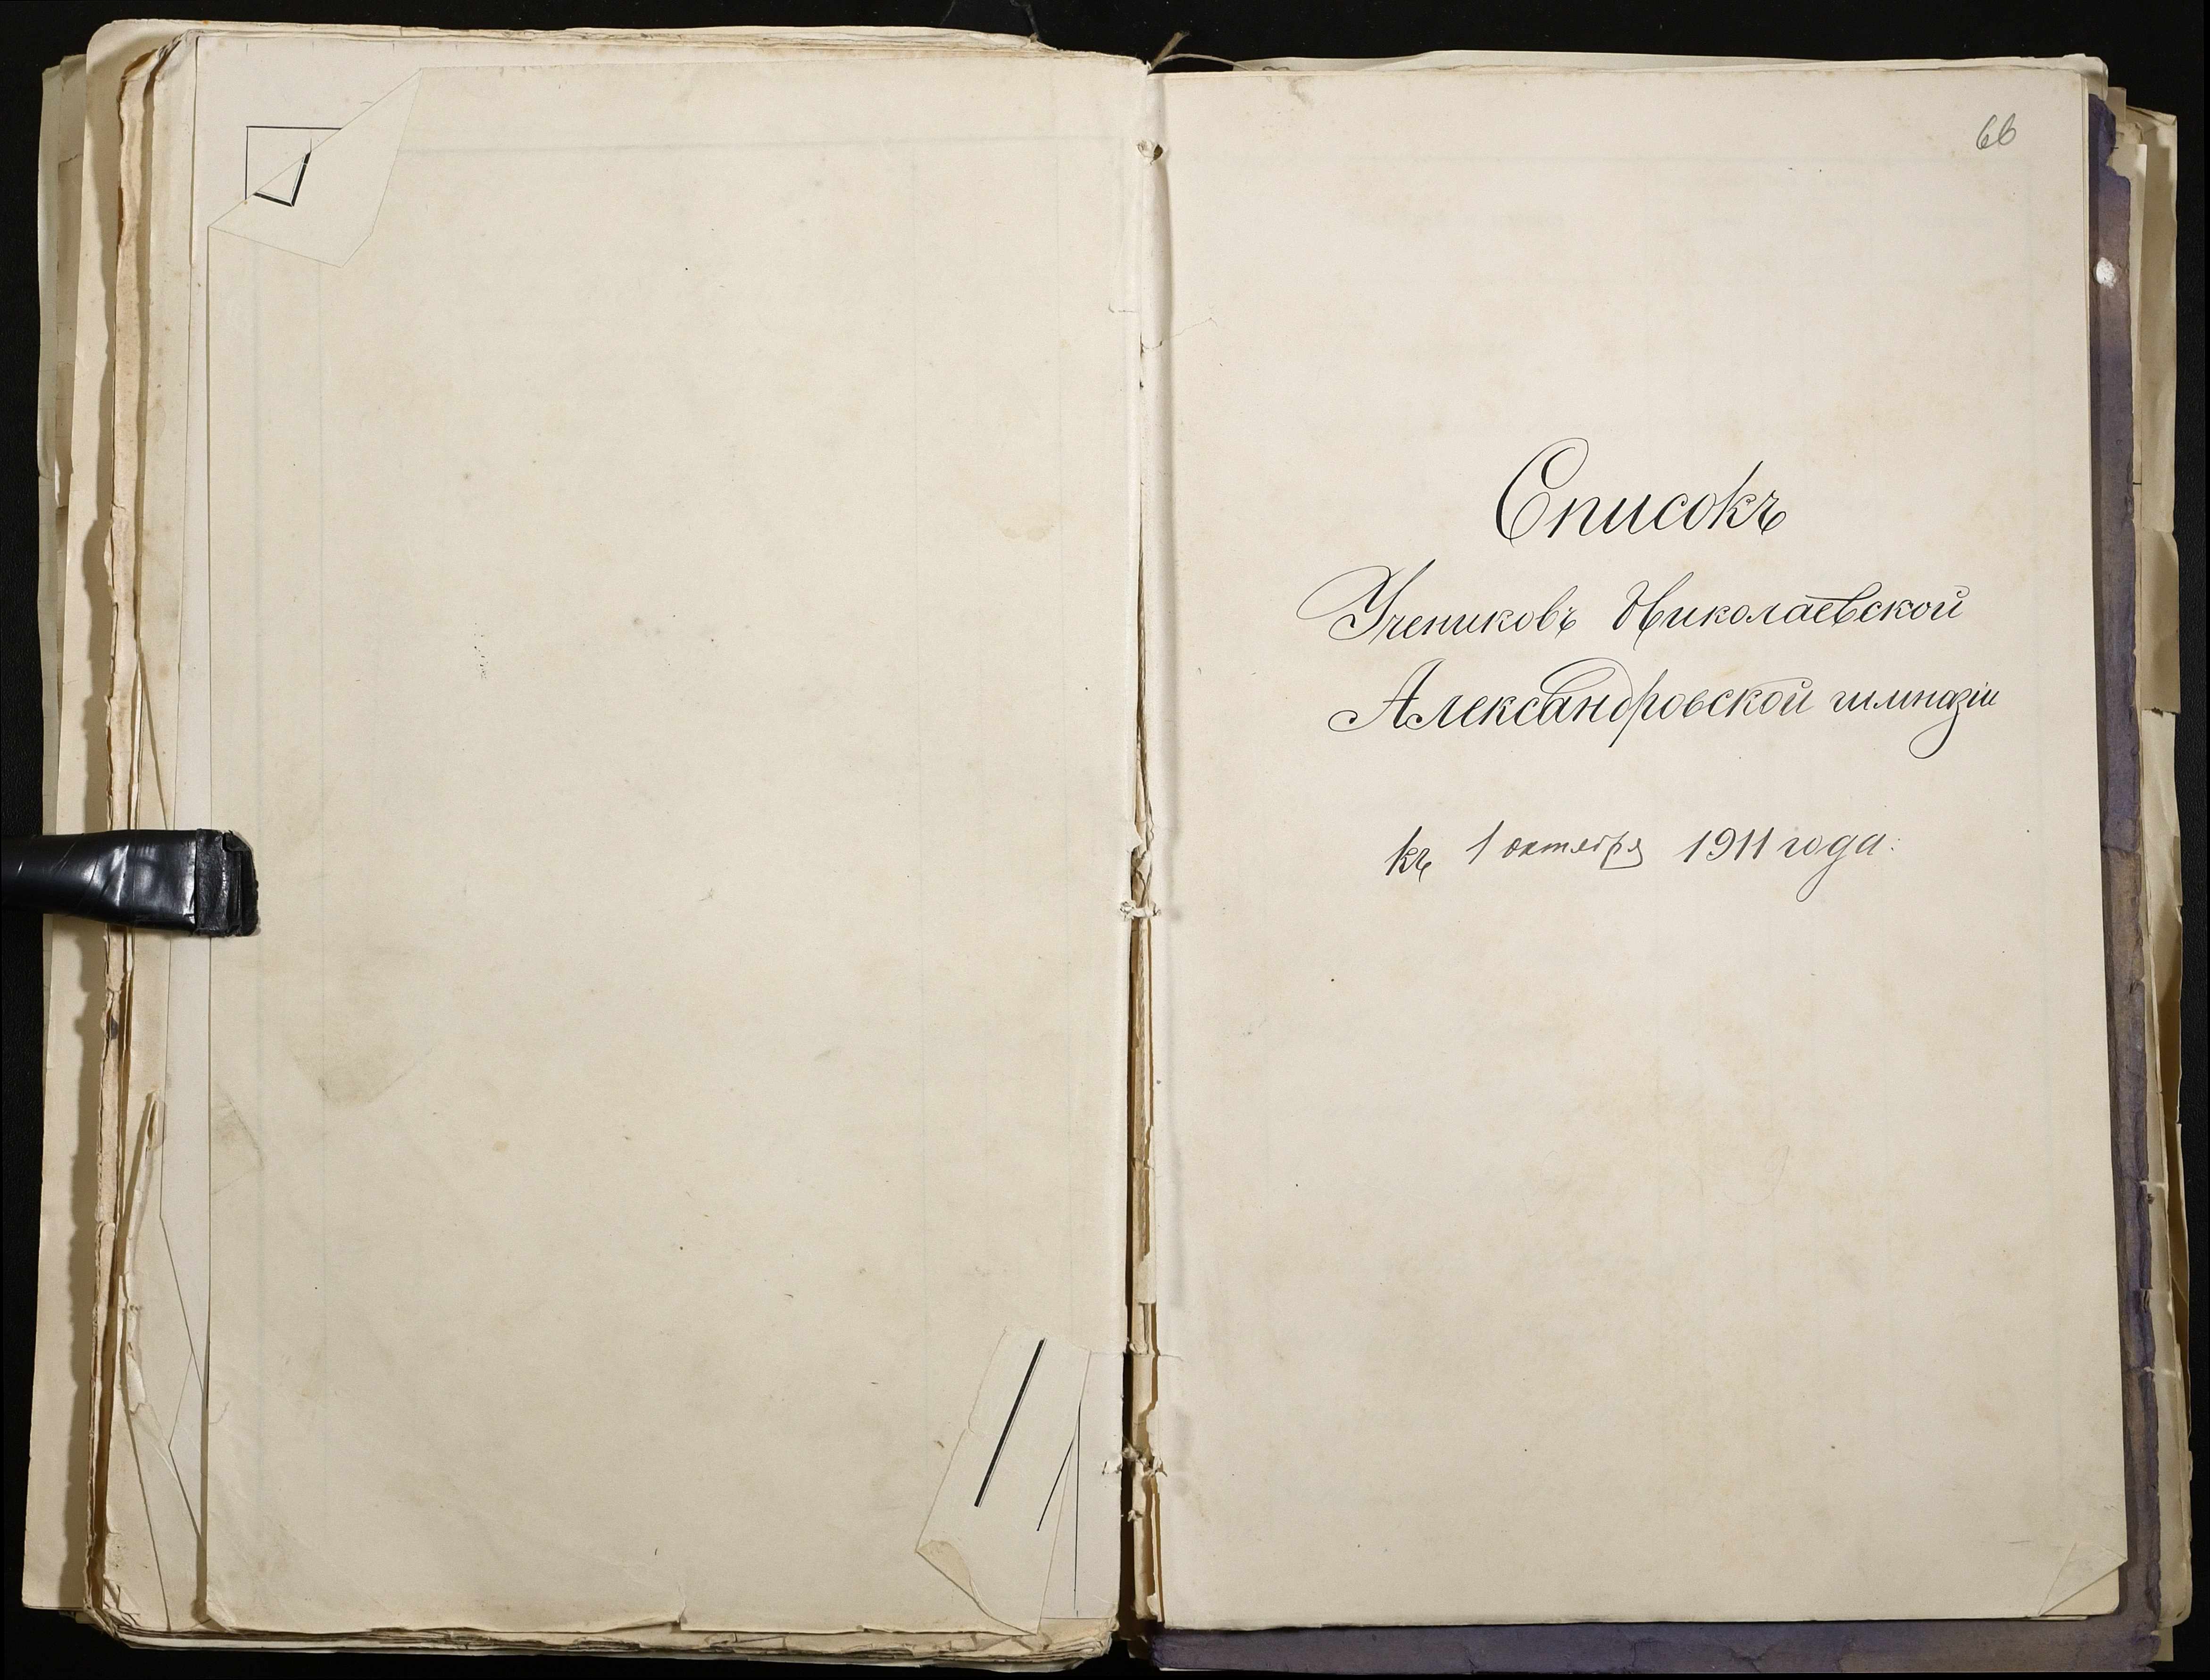 66
Списокъ
Учениковъ Николаевской
Александровской гимназіи
къ 1 октября 1911 года.